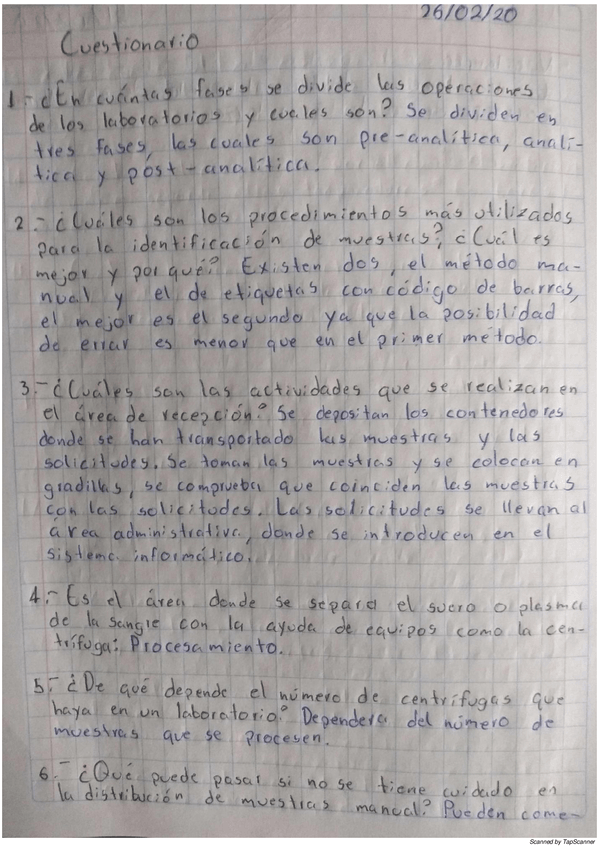 26/02/20
Cuestionario
1.- ¿En cuántas fases se divide las operaciones
de los laboratorios y cuales son? Se dividen en
tres fases, las cuales son pre-analítica, analí-
tica y póst-analítica.
2.- ¿Cuáles son los procedimientos más utilizados
para la identificación de muestras?, ¿Cuál es
mejor y por qué? Existen dos, el método ma-
nual y el de etiquetas con código de barras,
el mejor es el segundo ya que la posibilidad
de errar es menor que en el primer método.
3.- ¿Cuáles son las actividades que se realizan en
el área de recepción? Se depositan los contenedores
donde se han transportado las muestras y las
solicitudes. Se toman las muestras y se colocan en
gradillas, se comprueba que coinciden las muestras
con las solicitudes. Las solicitudes se llevan al
área administrativa, donde se introducen en el
sistema informático.
4.- Es el área donde se separa el suero o plasma
de la sangre con la ayuda de equipos como la cen-
trífuga: Procesamiento.
5.- ¿De qué depende el número de centrífugas que
haya en un laboratorio? Dependera del número de
muestras que se procesen.
6.- ¿Qué puede pasar si no se tiene cuidado en
la distribución de muestras manual? Pueden come-
Scanned by TapScanner